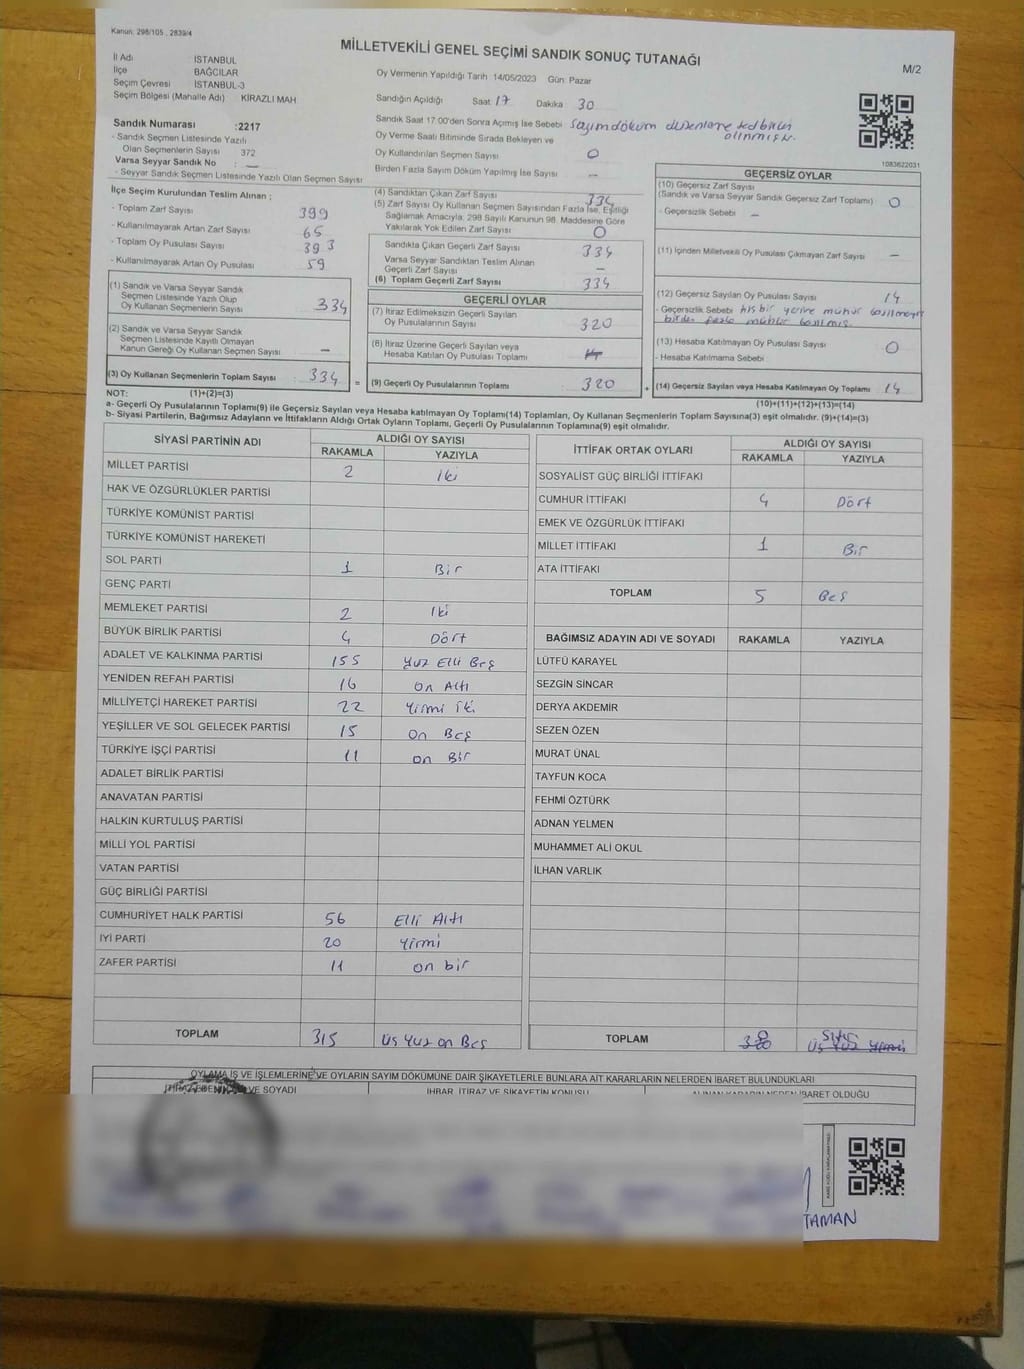 Kanun: 298/105 , 2839/4
MİLLETVEKİLİ GENEL SEÇİMİ SANDIK SONUÇ TUTANAĞI
M/2
İl Adı İSTANBUL
İlçe BAĞCILAR
Seçim Çevresi İSTANBUL-3
Seçim Bölgesi (Mahalle Adı) KİRAZLI MAH
Oy Vermenin Yapıldığı Tarih 14/05/2023 Gün Pazar
Sandığın Açıldığı Saat 17 Dakika 30
Sandık Saat 17:00'den Sonra Açımış İse Sebebi Sayım döküm
Oy Verme Saati Bitiminde Sırada Bekleyen ve
Oy Kullandırılan Seçmen Sayısı 0
Birden Fazla Sayım Döküm Yapılmış İse Sayısı -
1083622031
Sandık Numarası :2217
- Sandık Seçmen Listesinde Yazılı
Olan Seçmenlerin Sayısı 372
Varsa Seyyar Sandık No : -
- Seyyar Sandık Seçmen Listesinde Yazılı Olan Seçmen Sayısı
İlçe Seçim Kurulundan Teslim Alınan ;
- Toplam Zarf Sayısı 399
- Kullanılmayarak Artan Zarf Sayısı 65
- Toplam Oy Pusulası Sayısı 393
- Kullanılmayarak Artan Oy Pusulası 59
(1) Sandık ve Varsa Seyyar Sandık
Seçmen Listesinde Yazılı Olup
Oy Kullanan Seçmenlerin Sayısı 334
(2) Sandık ve Varsa Seyyar Sandık
Seçmen Listesinde Kayıtlı Olmayan
Kanun Gereği Oy Kullanan Seçmen Sayısı -
(3) Oy Kullanan Seçmenlerin Toplam Sayısı : 334 =
(4) Sandıktan Çıkan Zarf Sayısı 334
(5) Zarf Sayısı Oy Kullanan Seçmen Sayısından Fazla İse, Eşitliği
Sağlamak Amacıyla; 298 Sayılı Kanunun 98. Maddesine Göre
Yakılarak Yok Edilen Zarf Sayısı 0
Sandıkta Çıkan Geçerli Zarf Sayısı 334
Varsa Seyyar Sandıktan Teslim Alınan
Geçerli Zarf Sayısı -
(6) Toplam Geçerli Zarf Sayısı 334
GEÇERLİ OYLAR
(7) İtiraz Edilmeksizin Geçerli Sayılan
Oy Pusulalarının Sayısı 320
(8) İtiraz Üzerine Geçerli Sayılan veya
Hesaba Katılan Oy Pusulası Toplamı
(9) Geçerli Oy Pusulalarının Toplamı : 320 +
GEÇERSİZ OYLAR
(10) Geçersiz Zarf Sayısı
(Sandık ve Varsa Seyyar Sandık Geçersiz Zarf Toplamı) 0
- Geçersizlik Sebebi -
(11) İçinden Milletvekili Oy Pusulası Çıkmayan Zarf Sayısı -
(12) Geçersiz Sayılan Oy Pusulası Sayısı 14
- Geçersizlik Sebebi hiç bir yerine mühür basılmayıp
birden fazla mühür basılmış
(13) Hesaba Katılmayan Oy Pusulası Sayısı 0
- Hesaba Katılmama Sebebi
(14) Geçersiz Sayılan veya Hesaba Katılmayan Oy Toplamı 14
NOT: (1)+(2)=(3)
(10)+(11)+(12)+(13)=(14)
a- Geçerli Oy Pusulalarının Toplamı(9) ile Geçersiz Sayılan veya Hesaba katılmayan Oy Toplamı(14) Toplamları, Oy Kullanan Seçmenlerin Toplam Sayısına(3) eşit olmalıdır. (9)+(14)=(3)
b- Siyasi Partilerin, Bağımsız Adayların ve İttifakların Aldığı Ortak Oyların Toplamı, Geçerli Oy Pusulalarının Toplamına(9) eşit olmalıdır.
SİYASİ PARTİNİN ADI ALDIĞI OY SAYISI
RAKAMLA YAZIYLA
MİLLET PARTİSİ 2 iki
HAK VE ÖZGÜRLÜKLER PARTİSİ
TÜRKİYE KOMÜNİST PARTİSİ
TÜRKİYE KOMÜNİST HAREKETİ
SOL PARTİ 1 Bir
GENÇ PARTİ
MEMLEKET PARTİSİ 2 iki
BÜYÜK BİRLİK PARTİSİ 4 Dört
ADALET VE KALKINMA PARTİSİ 155 Yüz Elli Beş
YENİDEN REFAH PARTİSİ 16 On Altı
MİLLİYETÇİ HAREKET PARTİSİ 22 Yirmi iki
YEŞİLLER VE SOL GELECEK PARTİSİ 15 On Beş
TÜRKİYE İŞÇİ PARTİSİ 11 On Bir
ADALET BİRLİK PARTİSİ
ANAVATAN PARTİSİ
HALKIN KURTULUŞ PARTİSİ
MİLLİ YOL PARTİSİ
VATAN PARTİSİ
GÜÇ BİRLİĞİ PARTİSİ
CUMHURİYET HALK PARTİSİ 56 Elli Altı
İYİ PARTİ 20 Yirmi
ZAFER PARTİSİ 11 on bir
TOPLAM 315 Üç Yüz on Beş
İTTİFAK ORTAK OYLARI ALDIĞI OY SAYISI
RAKAMLA YAZIYLA
SOSYALİST GÜÇ BİRLİĞİ İTTİFAKI
CUMHUR İTTİFAKI 4 Dört
EMEK VE ÖZGÜRLÜK İTTİFAKI
MİLLET İTTİFAKI 1 Bir
ATA İTTİFAKI
TOPLAM 5 Beş
BAĞIMSIZ ADAYIN ADI VE SOYADI RAKAMLA YAZIYLA
LÜTFÜ KARAYEL
SEZGİN SİNCAR
DERYA AKDEMİR
SEZEN ÖZEN
MURAT ÜNAL
TAYFUN KOCA
FEHMİ ÖZTÜRK
ADNAN YELMEN
MUHAMMET ALİ OKUL
İLHAN VARLIK
TOPLAM
OYLAMA İŞ VE İŞLEMLERİNE VE OYLARIN SAYIM DÖKÜMÜNE DAİR ŞİKAYETLERLE BUNLARA AİT KARARLARIN NELERDEN İBARET BULUNDUKLARI
İTİRAZ EDENİN ADI VE SOYADI İHBAR, İTİRAZ VE ŞİKAYETİN KONUSU ALINAN KARARIN NEDEN İBARET OLDUĞU
TAMAN